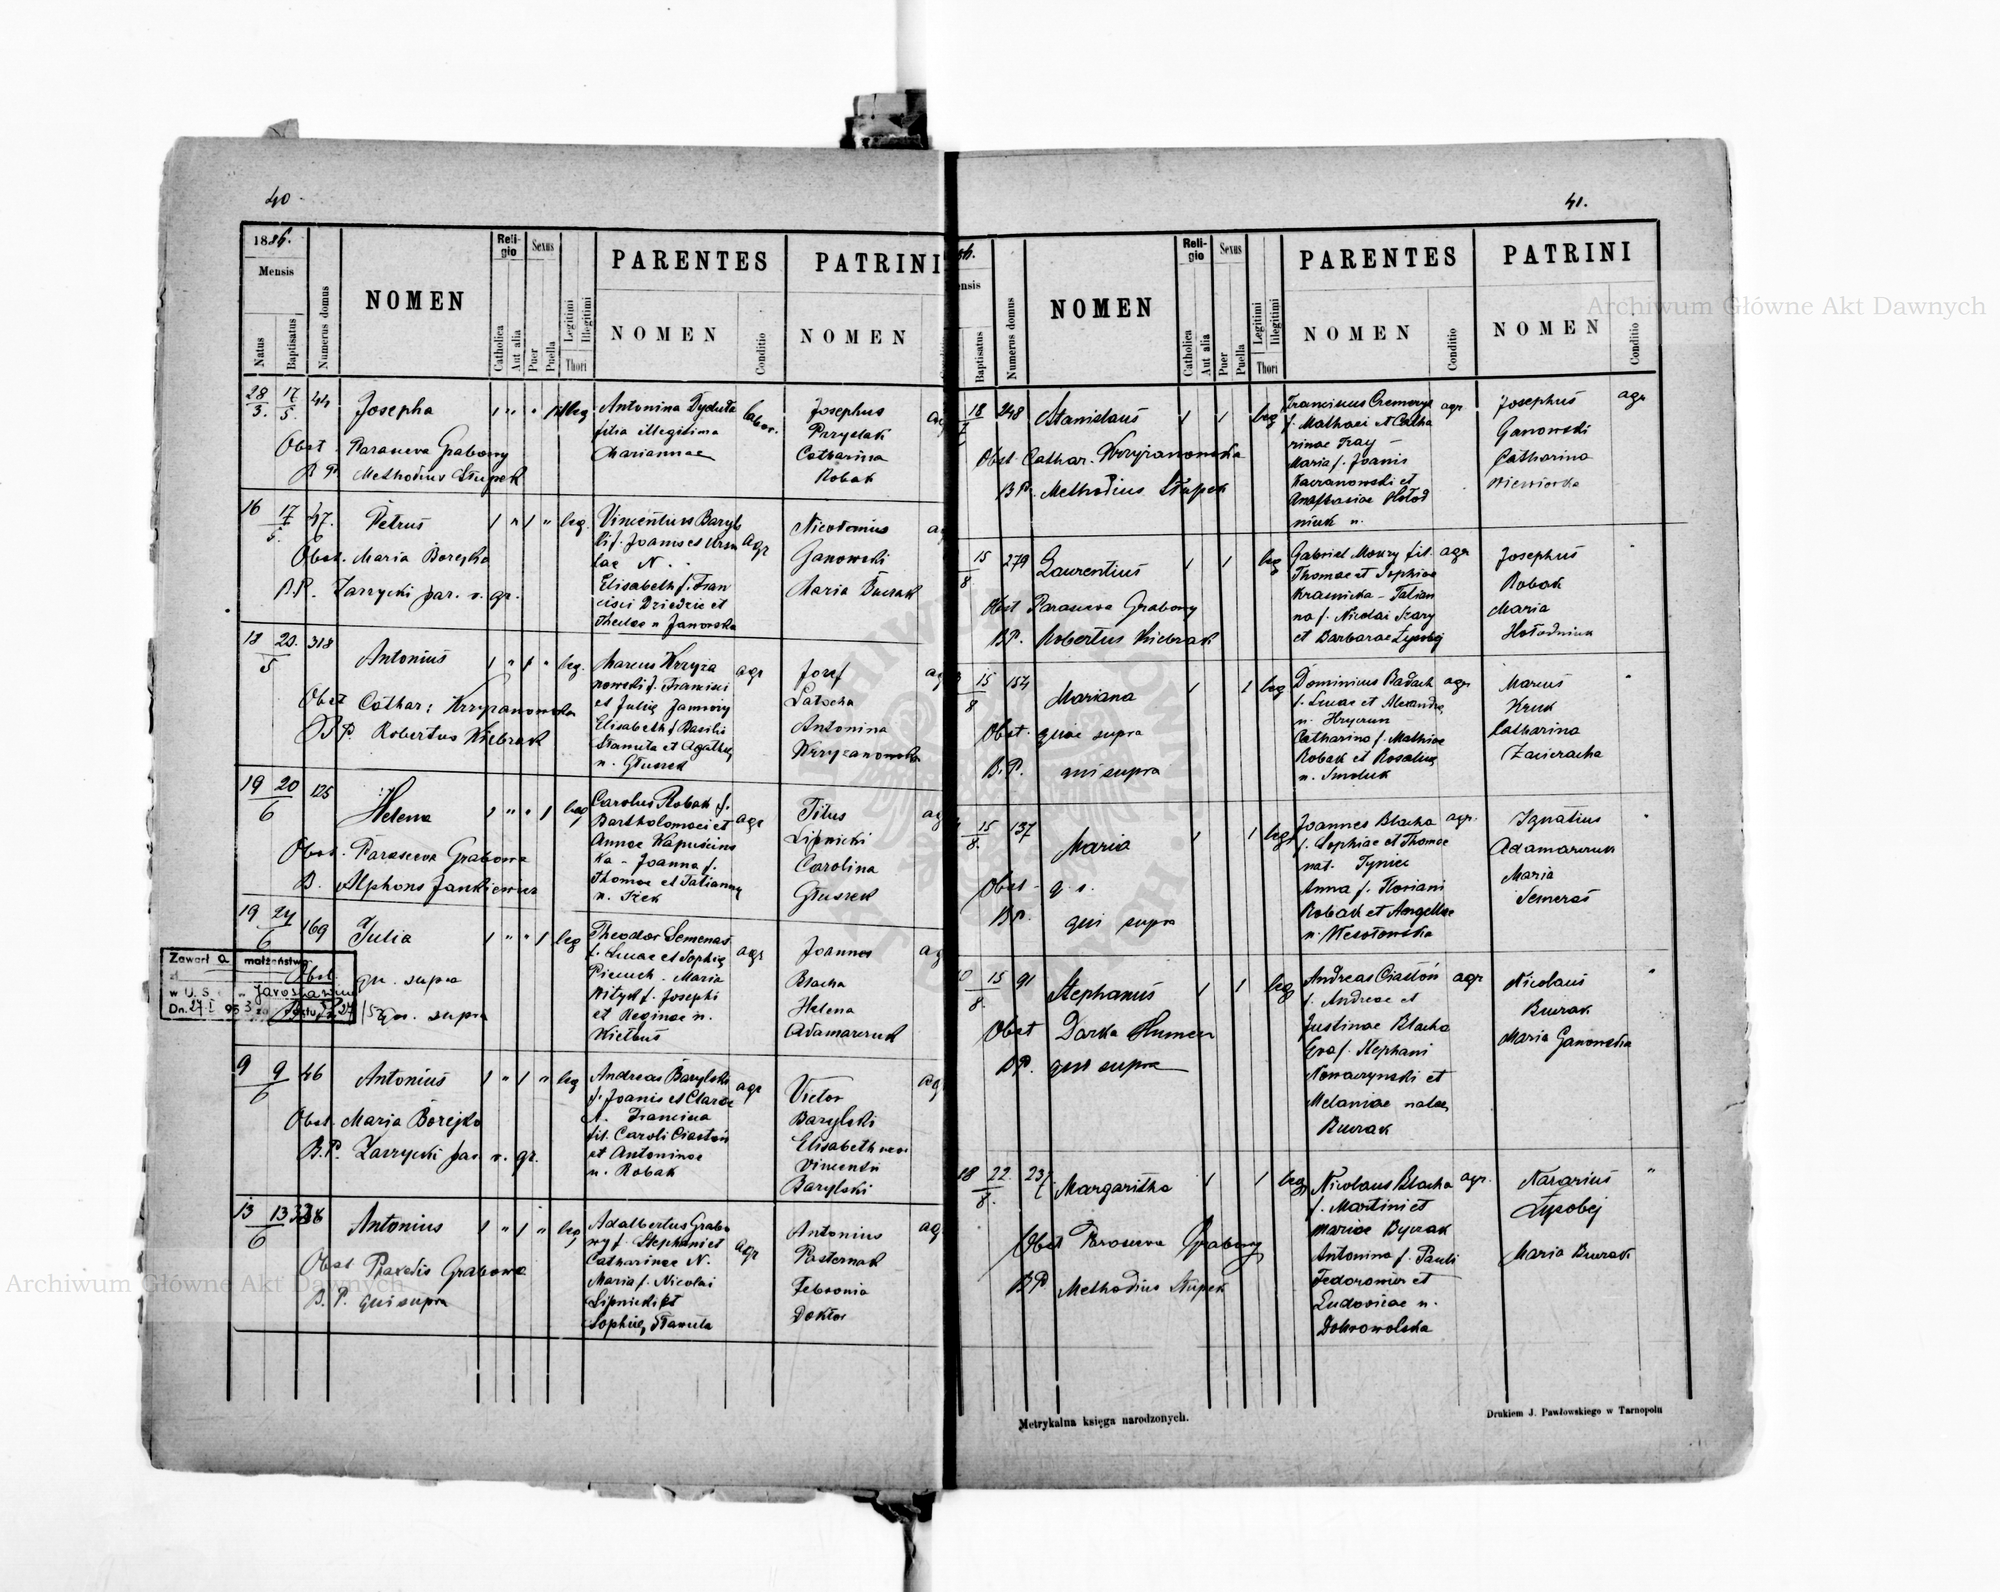 40
1886.
Mensis
Natus
Baptisatus
Numerus domus
NOMEN
Reli-
gio
Catholica
Aut alia
Sexus
Puer
Puella
Legitimi
Illegitimi
Thori
PARENTES
NOMEN
Conditio
PATRINI
NOMEN
28/3. 17/5. 44 Josepha 1 " " 1 illeg
Obst. Parasceva Grabowy
B.P. Methodius Słupek
Antonina Dyduła
filia illegitima
Mariannae
labor.
Josephus
Przysłak
Catharina
Robak
16 17/5. 47. Petrus 1 " 1 " leg.
Obst. Maria Borejko
B.P. Zarzycki par. r. gr.
Vincentius Baryls
ki f. Joannis et Ursu
lae N.
Elisabeth f. Fran
cisci Dziedzic et
Theclae n Janowska
agr
Nicodemus
Ganowski
Maria Burak
18 20./5 318 Antonius 1 " 1 " leg.
Obst Cathar: Krzyżanowska
B.P. Robertus Kiebzak
Marcus Krzyża
nowski f. Francisci
et Julię Jamrozy
Elisabeth f Basilii
Stanuta et Agathę
n. Głuszek
agr
Józef
Latocha
Antonina
Krzyżanowska
19 20/6 125 Helena 1 " " 1 leg
Obst. Parasceva Grabowe
B. Alphons Jankiewicz
Carolus Robak f.
Bartholomaei et
Annae Kapuścins
ka - Joanna f.
Thomae et Tatianny
n. Izek
agr
Titus
Lipnicki
Carolina
Głuszek
19 24/6 169 Julia 1 " " 1 leg
Obst. qu. supra
qu. supra
Theodor Semenas
f. Lucae et Sophię
Pieniek - Maria
Kityk f. Josephi
et Reginae n.
Kielbus
agr
Joannes
Blacha
Helena
Adamarczuk
Zawarł a małżeństwo
w U. S. C. w Jarosławiu
Dn. 27.I 953 za
9 9/6 46 Antonius 1 " 1 " leg
Obst. Maria Borejko
B.P. Zarzycki par. r. gr.
Andreas Barylski
f. Joanis et Clarae
N. Francisca
fil. Caroli Ciastoń
et Antoninae
n. Robak
agr
Victor
Barylski
Elisabeth uxor
Vincentii
Barylski
13 13/6 Antonius 1 " 1 " leg
Obst Praxedis Grabowe
B. P. qui supra
Adalbertus Grabo
wy f. Stephani et
Catharinae N.
Maria f. Nicolai
Lipnicki et
Sophię Stanuta
agr
Antonius
Pasternak
Febronia
Doktor
41.
86.
ensis
Baptisatus
Numerus domus
NOMEN
Reli-
gio
Catholica
Aut alia
Sexus
Puer
Puella
Legitimi
Illegitimi
Thori
PARENTES
NOMEN
Conditio
PATRINI
NOMEN
Conditio
18 248 Stanislaus 1 1 leg
Obst. Cathar. Krzyżanowska
B.P. Methodius Słupek
Franciscus Czemerys
f. Mathaei et Catha
rinae Tray -
Maria f. Joanis
Kaczanowski et
Anasthasiae Hołod
niuk n.
agr.
Josephus
Ganowski
Catharina
Wiewiórka
agr
15/8 279 Laurentius 1 1 leg
Obst Parasceva Grabowy
B.P. Robertus Kiebzak
Gabriel Moury fil.
Thomae et Sophiae
Krasnicka - Tatian
na f. Nicolai Szary
et Barbarae Łysobej
agr
Josephus
Robak
Maria
Hołodniuk
"
15/8 154 Mariana 1 1 leg
Obst. quae supra
B.P. qui supra
Dominicus Badach
f. Lucae et Alexandrę
n. Hrycrun
Catharina f. Mathiae
Robak et Rosaliae
n. Smoluk
agr
Marcus
Kruk
Catharina
Zawieracha
"
15/8. 137 Maria 1 1 leg
Obst - q. s.
B.P. qui supra
Joannes Blacha
f. Sophiae et Thomae
nat. Tyniec
Anna f. Floriani
Robak et Angellae
n. Wesołowska
agr.
Ignatius
Adamarczuk
Maria
Semeras
"
15/8. 91 Stephanus 1 1 leg
Obst Darka Humen
B.P. qui supra
Andreas Ciastoń
f. Andreae et
Justinae Blacha
Eva f. Stephani
Nowaczynski et
Melaniae natae
Burak
agr
Nicolaus
Burak
Maria Ganowska
"
18 22/8. 237 Margaritha 1 1 leg
Obst Parasceva Grabowy
B.P. Methodius Słupek
Nicolaus Blacha
f. Martini et
Mariae Byczak
Antonina f. Pauli
Fedorowicz et
Ludovicae n.
Dobrowolska
agr.
Nazarius
Łysobej
Maria Burak
"
Metrykalna księga narodzonych.
Drukiem J. Pawłowskiego w Tarnopolu
Archiwum Główne Akt Dawnych
Archiwum Główne Akt Dawnych